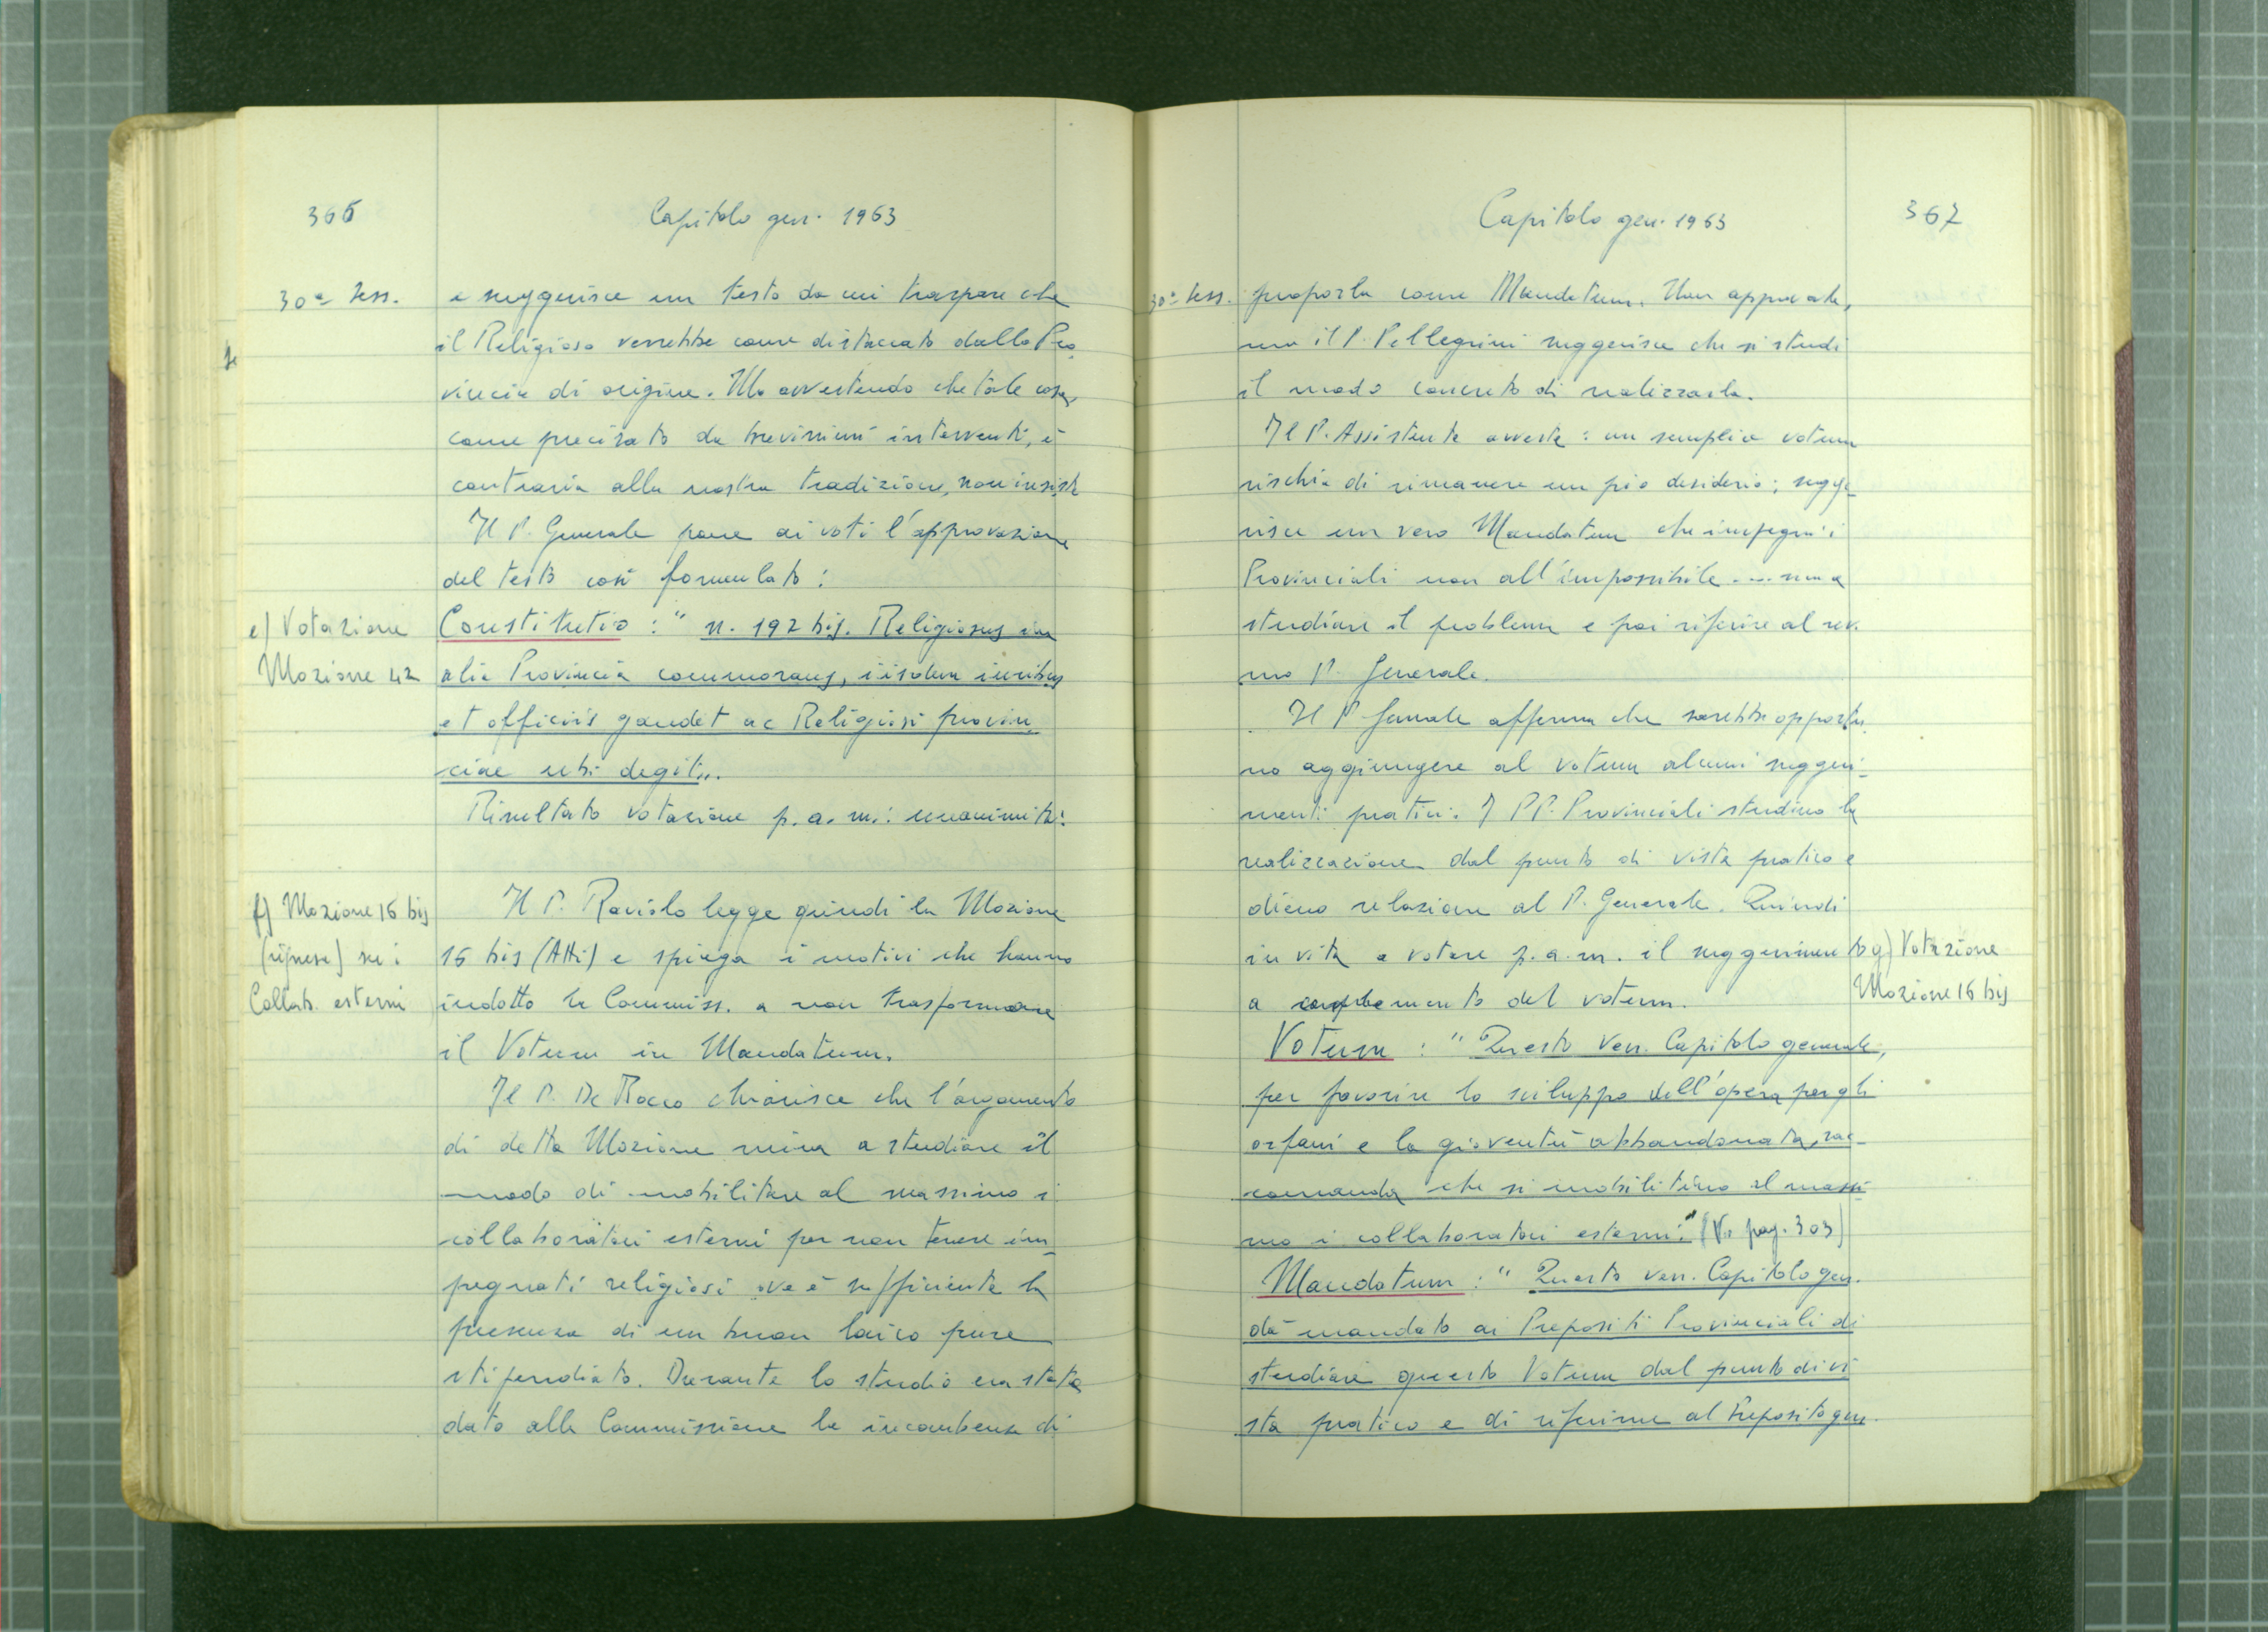 366
Capitolo gen. 1963
30ª Sess.
e suggerisce un testo da cui traspare che
il Religioso verrebbe come distaccato dalla Pro
vincia di origine. Ma avvertendo che tale cosa,
come precisato da brevissimi interventi, è
contraria alla nostra tradizione, non insiste
Il P. Generale pone ai voti l'approvazione
del testo così formulato:
e) Votazione
Mozione 42
Constitutio : " n. 192 bis. Religiosus in
alia Provincia commorans, iisdem iuribus
et officiis gaudet ac Religiosi provin_
ciae ubi degit„.
Risultato votazione p. a. m.: unanimità.
f) Mozione 16 bis
(ripresa) su i
Collab. esterni
Il P. Raviolo legge quindi la Mozione
16 bis (Atti) e spiega i motivi che hanno
indotto la Commiss. a non trasformare
il Votum in Mandatum.
Il P. De Rocco chiarisce che l'argomento
di detta Mozione mira a studiare il
modo di mobilitare al massimo i
collaboratori esterni per non tenere im_
pegnati religiosi ove è sufficiente la
presenza di un buon laico pure
stipendiato. Durante lo studio era stata
data alla Commissione la incombenza di
Capitolo gen. 1963
367
30ª Sess.
proporla come Mandatum. Non approvata,
ma il P. Pellegrini suggerisce che si studi
il modo concreto di realizzarla.
Il P. Assistente avverte : un semplice votum
rischia di rimanere un pio desiderio ; sugge_
risce un vero Mandatum che impegni i
Provinciali non all'impossibile .... ma a
studiare il problema e poi riferire al rev.
mo P. Generale.
Il P. Generale afferma che sarebbe opportu_
no aggiungere al votum alcuni suggeri_
menti pratici. I PP. Provinciali studino la
realizzazione dal punto di vista pratico e
diano relazione al P. Generale. Quindi
invita a votare p. a. m. il suggerimento
a complemento del votum.
g) Votazione
Mozione 16 bis
Votum : " Questo Ven. Capitolo generale,
per favorire lo sviluppo dell'opera per gli
orfani e la gioventù abbandonata, rac_
comanda che si mobilitino al massi
mo i collaboratori esterni." (V. pag. 303)
Mandatum : " Questo ven. Capitolo gen.
dà mandato ai Prepositi Provinciali di
studiare questo Votum dal punto di vi
sta pratico e di riferirne al Preposito gen.